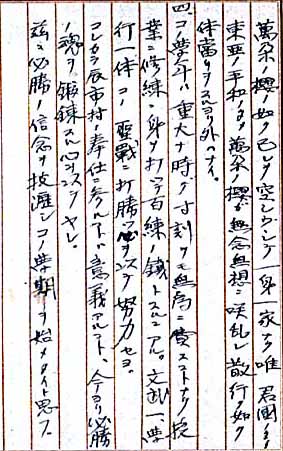 萬朶ノ櫻ノ如ク己レヲ空シウシテ一身一家ヲ唯君國ノ
東亜ノ平和ノ為萬朶ノ櫻ガ無念無想ニ咲乱レ散行ク如ク
体當リヲスルヨリ外ハナイ。
四、コノ学年ハ重大ナ時ダ寸刻ヲモ無為ニ費スコトナク授
業ニ修練ニ身ヲ打ッテ百練ノ鐵トスルニアル。文武一
行一体コノ聖戰ニ打勝ツ心ヲツケ努力セヨ。
コレカラ辰市村ノ奉仕ニ参ルコトハ意義アルコト、今ヨリ必勝
ノ魂ヲ鍛錬スル心ヲツケヤレ。
茲ニ必勝ノ信念ヲ披瀝シコノ学期ヲ始メタイト思フ